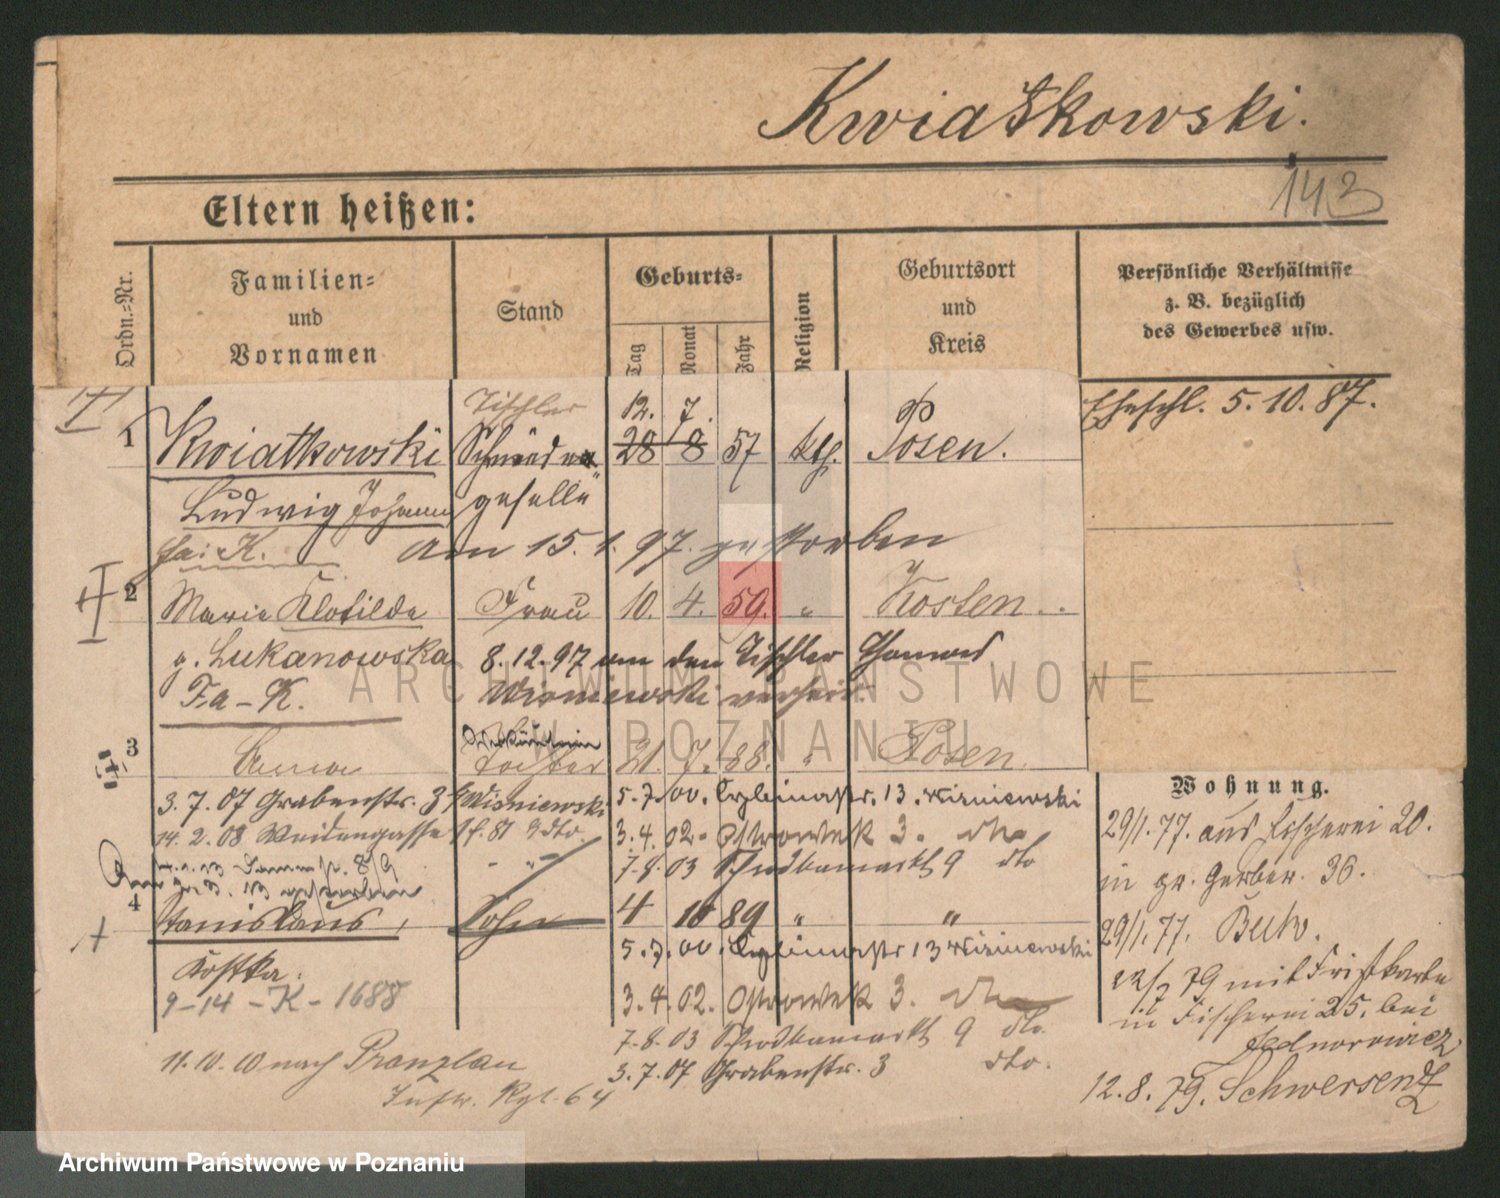 Kwiatkowski.
143
Eltern heißen:
Ordn.-Nr.
Familien-
und
Vornamen
Stand
Geburts-
Tag
Monat
Jahr
Religion
Geburtsort
und
Kreis
Persönliche Verhältnisse
z. B. bezüglich
des Gewerbes usw.
Tischler 12. 7.
1 Kwiatkowski Schneider 28 8 57 kth. Posen.
Eheschl. 5. 10. 87.
Ludwig Johann geselle
K. am 15. 1. 97. gestorben
2 Marie Klotilde Frau 10. 4. 59. " Kosten.
g. Lukanowska 8. 12. 97 den Tischler Thomas
Fa - K. Wisniewski verheir.
Verkäuferin
3 Anna Tochter 21. 7. 88. " Posen.
Wohnung.
3. 7. 07 Grabenstr. 3 Wisniewski 5. 7. 00. 13. Wisniewski
14. 2. 08 Weidengasse 3. 4. 02. Ostrowek 3. dto
Dammstr. 8/9 7. 8. 03 Schrodkamarkt 9 dto
gestorben
4 Stanislaus, Sohn 4 10 89 " "
Kostka. 5. 7. 00. 13 Wisniewski
9 - 14 - K - 1688 3. 4. 02. Ostrowek 3. dto
7. 8. 03 Schrodkamarkt 9 dto.
11. 10. 10 nach Prenzlau 3. 7. 07 Grabenstr. 3 dto.
Inftr. Rgt. 64
29/1. 77. aus Fischerei 20.
in gr. Gerber. 36.
29/1. 77. Buk.
79 mit Fristkarte
in Fischerei 25. bei
12. 8. 79. Schwersenz
ARCHIWUM PAŃSTWOWE
W POZNANIU
Archiwum Państwowe w Poznaniu